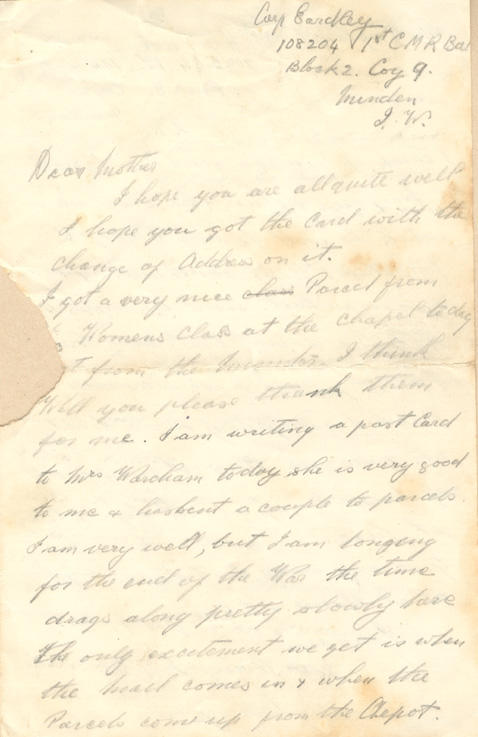 Corp Eardley
108204 1st C M R Bat
Block 2. Coy 9.
Minden
I. W.
Dear Mother
I hope you are all quite well
I hope you got the Card with the
change of Address on it.
I got a very nice class Parcel from
Womens Class at the chapel today
from the I think
Will you please thank them
for me. I am writing a post Card
to Mrs Wareham today she is very good
to me & has sent a couple to parcels.
I am very well, but I am longing
for the end of the War the time
drags along pretty slowly here
The only excitement we get is when
the mail comes in & when the
Parcels come up from the Depot.